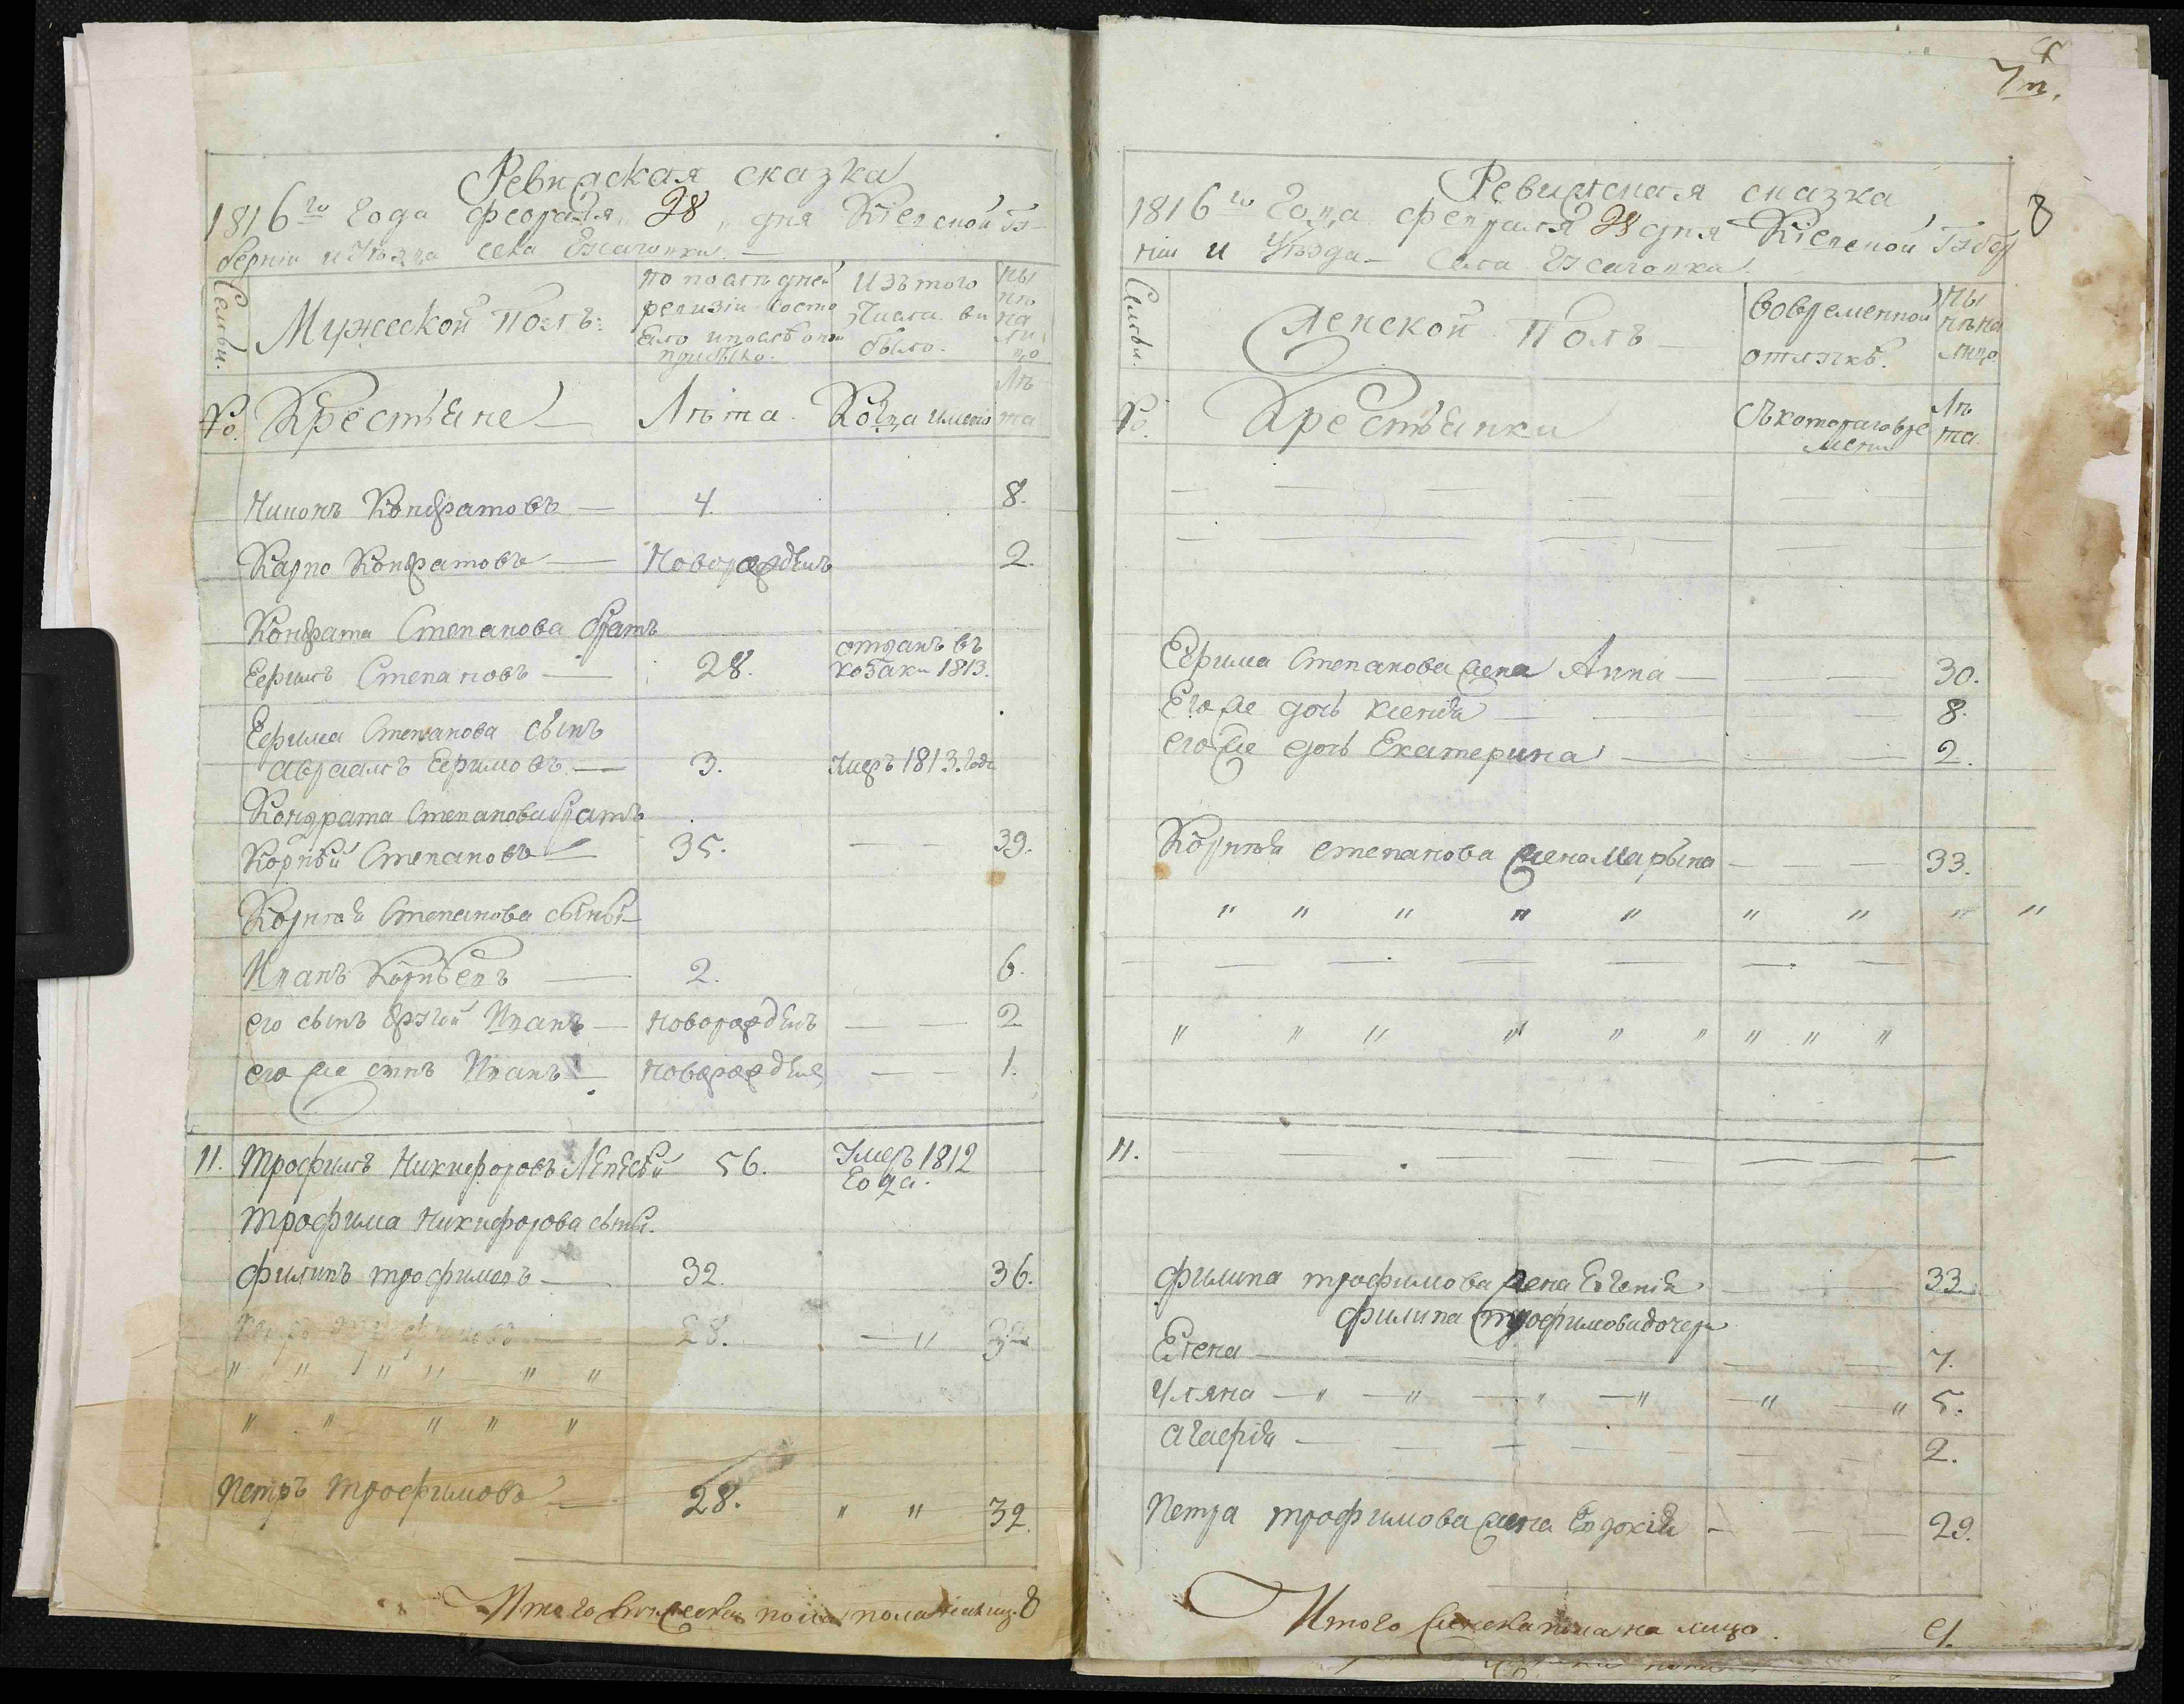 Ревижская сказка
1816го Года февраля 28 дня Кіевской Гу
берніи и Уѣзда села
Семьи.
Мужеской Полъ.
По послѣдней
ревизіи состо
яло и послѣ оной
прибыло.
Изъ того
числа вы
было.
Ны
нѣ
на
ли
цо
№
Крестьяне
Лѣта.
Когда имено
Лѣ
та
Никонъ Кондратовъ — 4. 8.
Карпо Кондратовъ — Новорожденъ 2.
Кондрата Степанова братъ
Ефимъ Степановъ — 28. отданъ въ козаки 1813.
Ефима Степанова сынъ
Авраамъ Ефимовъ — 3. Умеръ 1813. Года
Кондрата Степанова братъ
Корнѣй Степановъ — 35. — — 39.
Корнѣя Степанова сыны
Иванъ Корнѣевъ — 2. 6.
его сынъ другой Иванъ — новорожденъ — — 2
его же сынъ Иванъ — новорожденъ — — 1.
11. Трофимъ Никифоровъ 56. Умеръ 1812 Года.
Трофима Никифорова сыны.
Филипъ Трофимовъ — 32. 36.
Петръ Трофимовъ — 28. — " 32
" " " " " "
" " " " "
Петръ Трофимовъ — 28. " " 32.
Итого мужеска пола на лицо 8
7т.
8
Ревижская сказка
1816го Года февраля 28 дня Кіевской Губер
ніи и Уѣзда — Села
Семьи.
Женской Полъ
Вовременной
отлучкѣ.
Ны
нѣ на
лицо
№
Крестьянки
Съ котораго вре
мени
Лѣ
та.
Ефима Степанова жена Анна — — — 30.
Его же дочь Ксенія — — — 8.
его же дочь Екатерина — — — 2.
Корнѣя Степанова жена Марына — — — 33.
" " " " " " " " "
— — — — — — —
" " " " " " " " "
11. — — — — — — —
Филипа Трофимова жена Евгенія — — 33
Филипа Трофимова дочери
Елена — — — — 7.
Уляна — " — " — " — " — " — " 5.
Агафія — — — — — — 2.
Петра Трофимова жена Евдокія — — — 29.
Итого женска пола на лицо. 9.